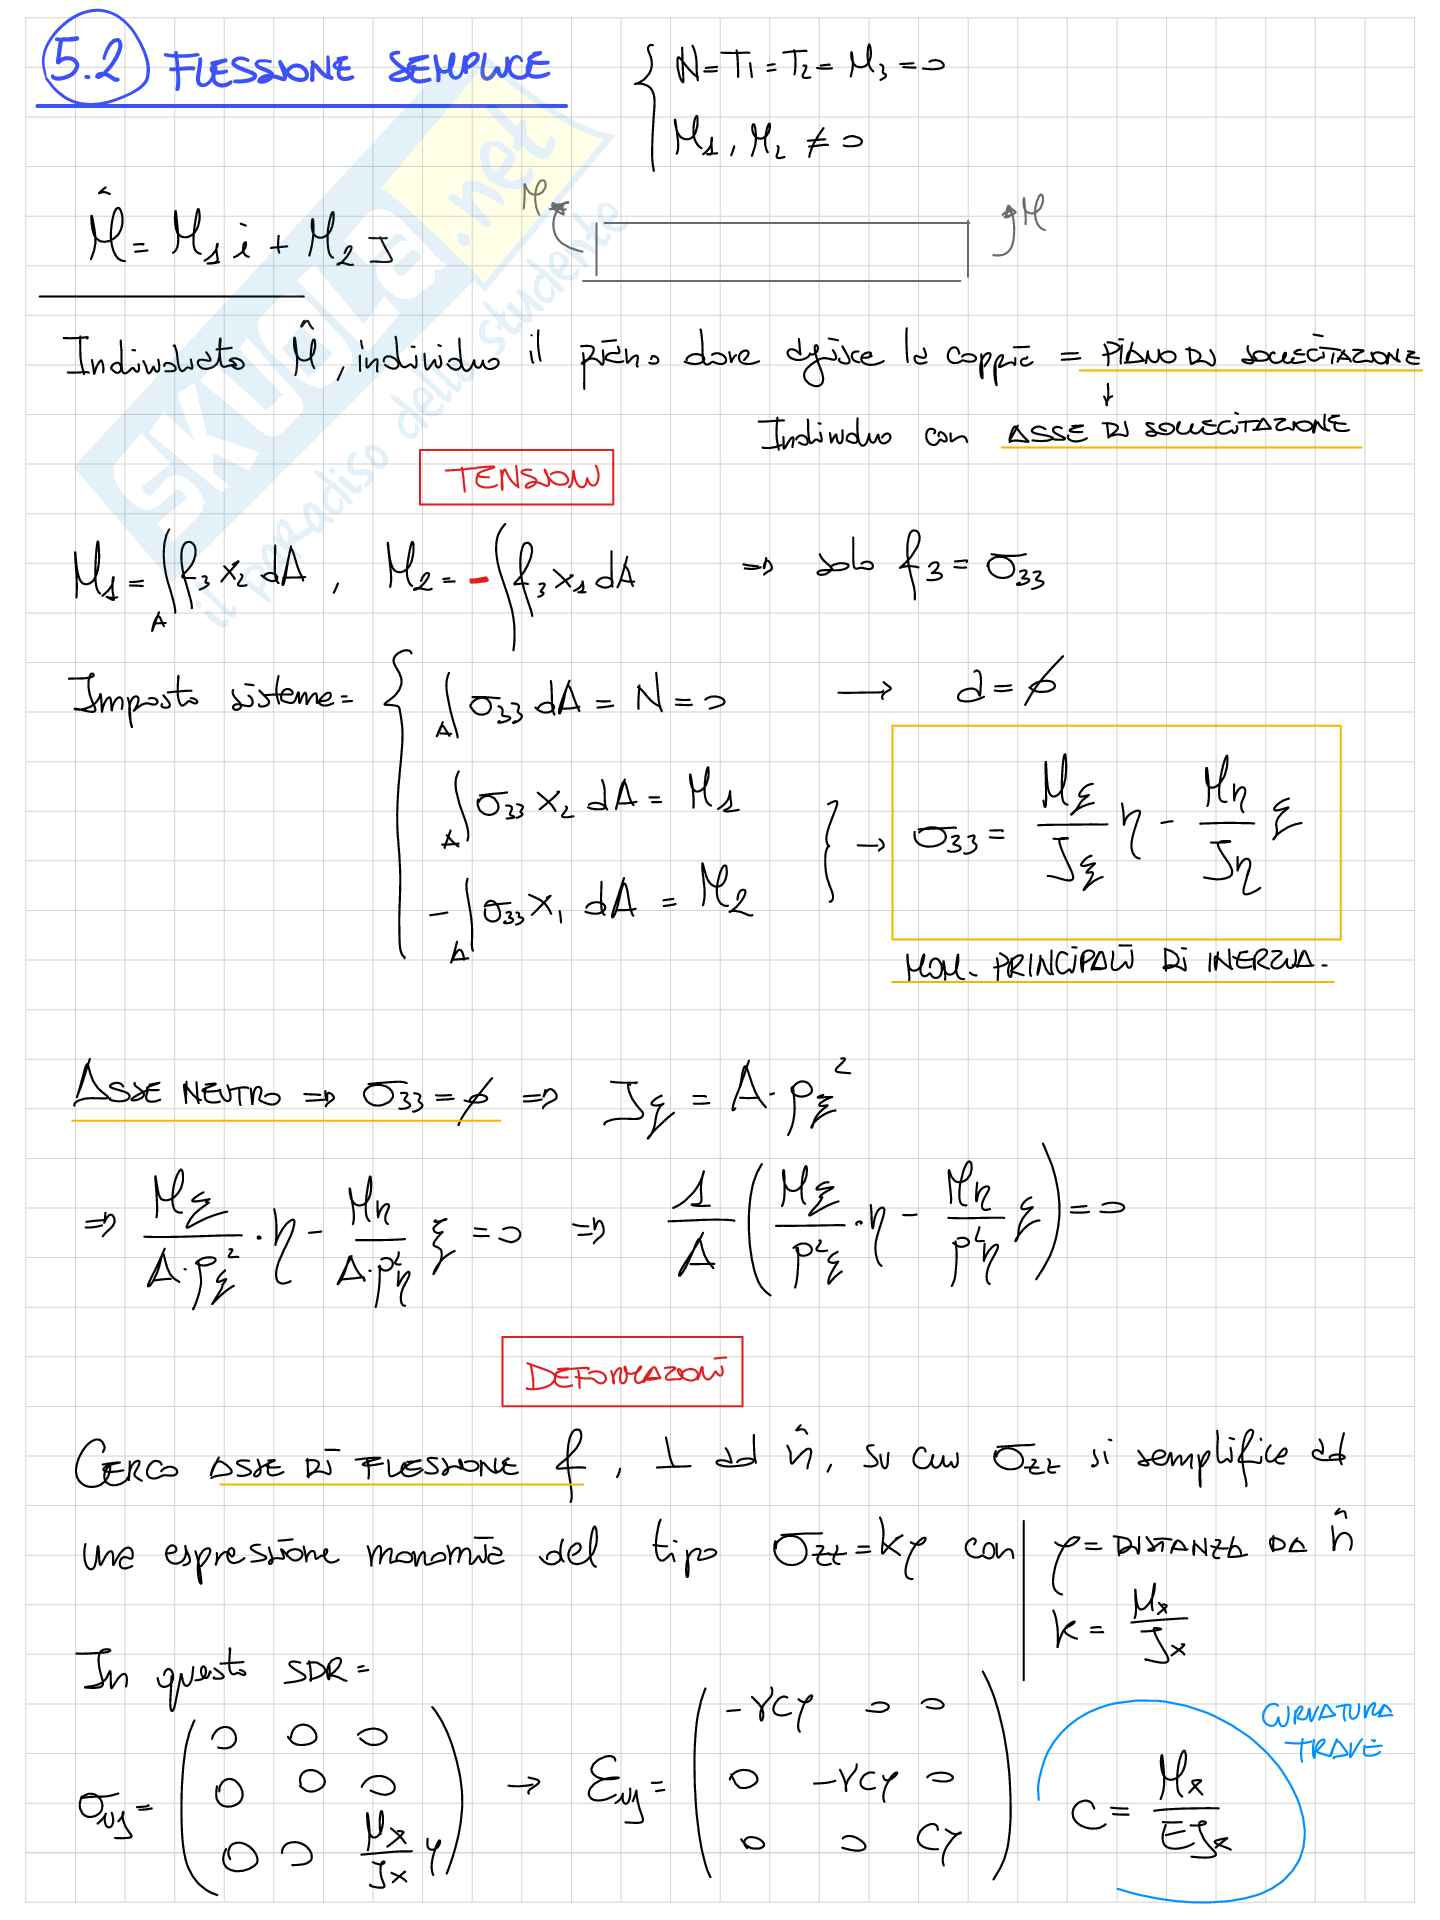 5.2 FLESSIONE SEMPLICE
{ N = T₁ = T₂ = M₃ = 0
M₁, M₂ ≠ 0
M̂ = M₁ i + M₂ J
M M
Individuato M̂, individuo il piano dove agisce la coppia = PIANO DI SOLLECITAZIONE
↓
Individuo con ASSE DI SOLLECITAZIONE
TENSIONI
M₁ = ∫_A f₃ x₂ dA , M₂ = - ∫ f₃ x₁ dA ⇒ solo f₃ = σ₃₃
Imposto sistema = { ∫_A σ₃₃ dA = N = 0 → a = ∅
∫_A σ₃₃ x₂ dA = M₁
- ∫_A σ₃₃ x₁ dA = M₂ } → σ₃₃ = M_ξ/J_ξ η - M_η/J_η ξ
MOM. PRINCIPALI DI INERZIA.
ASSE NEUTRO ⇒ σ₃₃ = ∅ ⇒ J_ξ = A · ρ_ξ²
⇒ M_ξ/(A·ρ_ξ²) · η - M_η/(A·ρ_η²) ξ = 0 ⇒ 1/A (M_ξ/ρ²_ξ · η - M_η/ρ²_η ξ) = 0
DEFORMAZIONI
CERCO ASSE DI FLESSIONE f , ⊥ ad n̂, su cui σ_zz si semplifica ad
una espressione monomia del tipo σ_zz = kγ con | γ = DISTANZA DA n̂
k = M_x/J_x
In questo SDR =
σ_ij = ( 0 0 0
0 0 0
0 0 M_x/J_x y ) → ε_ij = ( -νcy 0 0
0 -νcy 0
0 0 cy )
C = M_x/EJ_x
CURVATURA
TRAVE
SKUOLA.net
il paradiso dello studente